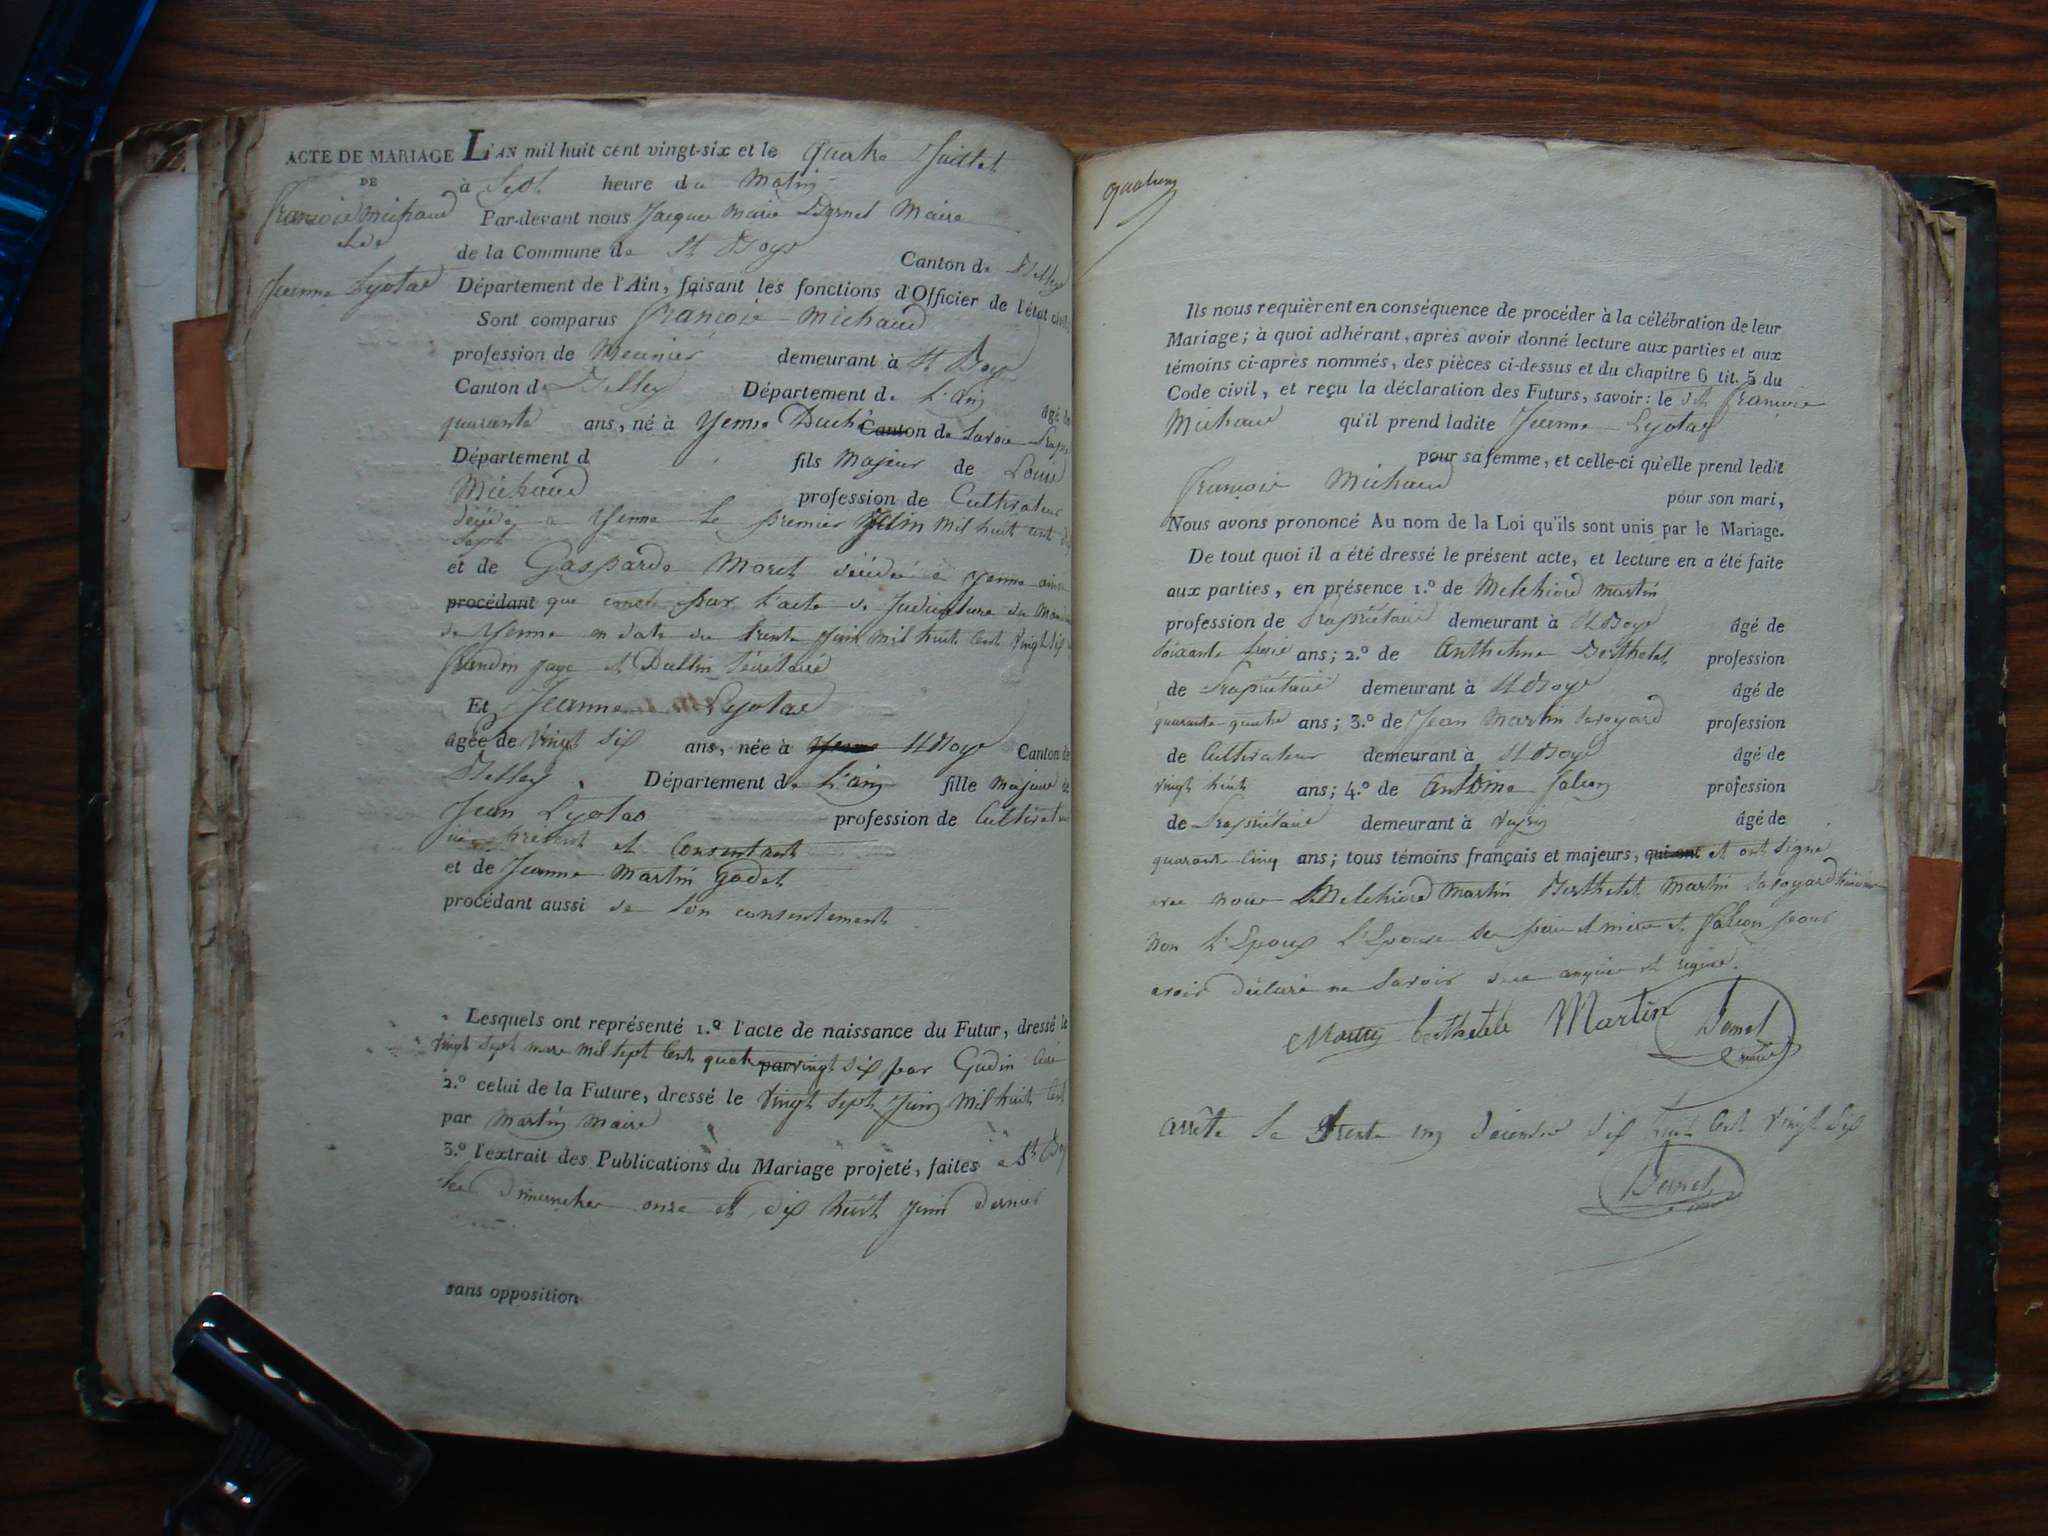 ACTE DE MARIAGE
DE
françois michaud
et de
Jeanne Lyotard
L'AN mil huit cent vingt-six et le quatre Juillet
à Sept heure du Matin
Par-devant nous Jacques Marie Dornet Maire
de la Commune de St Boys Canton de Belley
Département de l'Ain, faisant les fonctions d'Officier de l'état civil
Sont comparus françois Michaud
profession de Meunier demeurant à St Boys
Canton de Belley Département de L'ain âgé de
quarante ans, né à Yenne Duché Canton de Savoie
Département d fils Majeur de Louis
Michaud profession de Cultivateur
décédé a Yenne le premier Juin mil huit cent dix
sept
et de Gasparde Moret décédée a Yenne ainsi
procédant que conste par l'acte de Judicature du
de Yenne en date du trente Juin mil huit cent vingt six
juge et Dullin sécrétaire
Et Jeanne Lyotard
agée de vingt six ans, née à Yenne St Boys Canton de
Belley Département de L'ain fille majeure de
Jean Lyotard profession de Cultivateur
ici présent et Consentant
et de Jeanne Martin godet
procédant aussi de son consentement
Lesquels ont représenté 1.º l'acte de naissance du Futur, dressé le
vingt sept mars mil sept cent quatre par vingt six par Gudin Curé
2.º celui de la Future, dressé le vingt sept Juin mil huit cent
par Martin maire
3.º l'extrait des Publications du Mariage projeté, faites a St Boys
les Dimanches onze et dix huit Juin dernier
sans opposition
Ils nous requièrent en conséquence de procéder à la célébration de leur
Mariage; à quoi adhérant, après avoir donné lecture aux parties et aux
témoins ci-après nommés, des pièces ci-dessus et du chapitre 6 tit. 5 du
Code civil, et reçu la déclaration des Futurs, savoir: le dt françois
Michaud qu'il prend ladite Jeanne Lyotard
pour sa femme, et celle-ci qu'elle prend ledit
françois Michaud pour son mari,
Nous avons prononcé Au nom de la Loi qu'ils sont unis par le Mariage.
De tout quoi il a été dressé le présent acte, et lecture en a été faite
aux parties, en présence 1.º de Melchiord Martin
profession de Propriétaire demeurant à St Boys âgé de
soixante trois ans; 2.º de Anthelme Berthelet profession
de Propriétaire demeurant à St Boys âgé de
quarante-quatre ans; 3.º de Jean Martin savoyard profession
de Cultivateur demeurant à St Boys âgé de
vingt huit ans; 4.º de Antoine falcon profession
de Propriétaire demeurant à âgé de
quarante cinq ans; tous témoins français et majeurs, qui ont et ont signé
avec nous Melchiord Martin Berthelet Martin savoyard témoins
non L'Epoux l'Epouse ses père et mère et falcon pour
avoir déclaré ne savoir de ce enquis et requis.
Martin berthelet Martin Dornet
maire
arrêté le trente un décembre dix huit cent vingt six
Dornet
maire